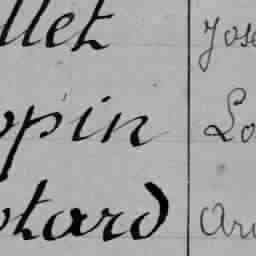 llet Jose
opin Lo
otard Ari